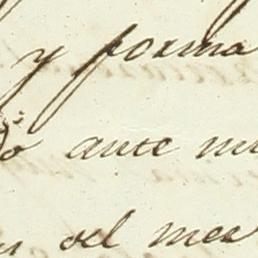 y forma
ante mi
del mes